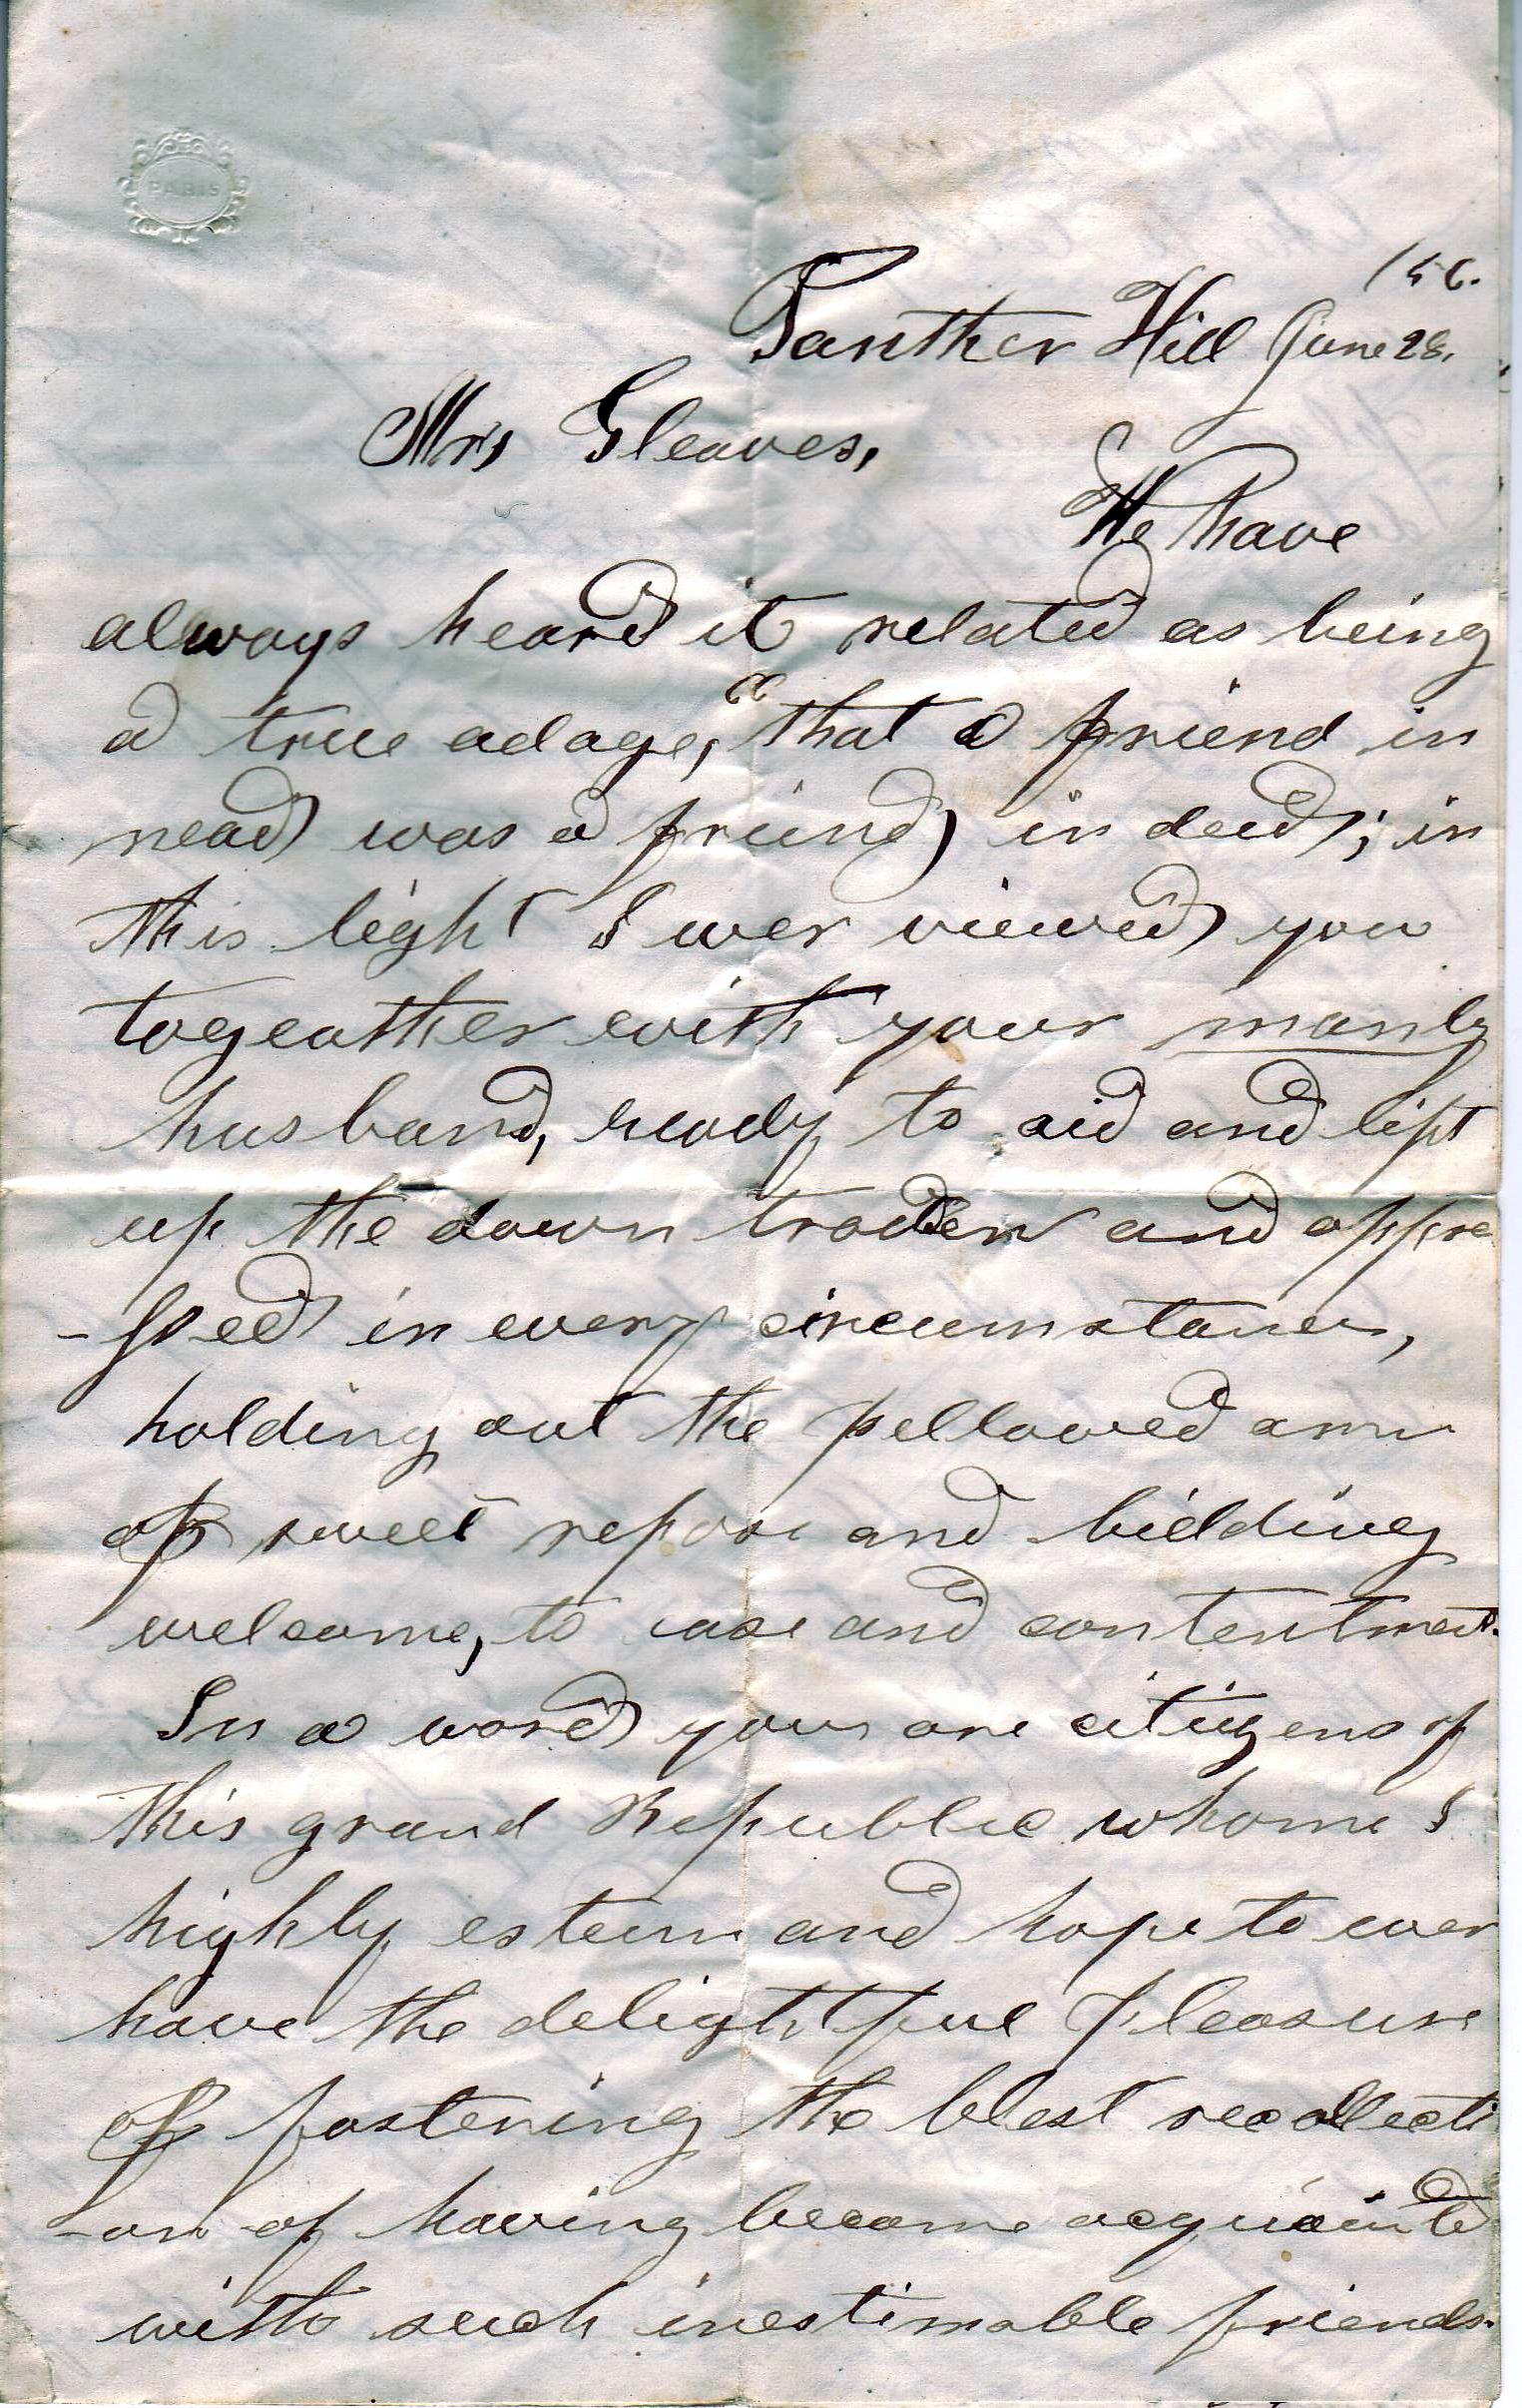 PARIS
/56.
Panther Hill June 28,
Mrs Gleaves,
We have
always heard it related as being
a true adage, "that a friend in
nead was a friend in deed; in
this light I ever viewed you
togeather with your manly
husband, ready to aid and lift
up the down trodden and oppre
-ssed in every circumstance,
holding out the pellowed arm
of sweet repose and bidding
welcome, to ease and contentment.
In a word you are citizens of
this grand Republic whome I
highly esteem and hope to ever
have the delightful pleasure
of fostering the blest recollecti
-on of having become acquainted
with such inestimable friends.